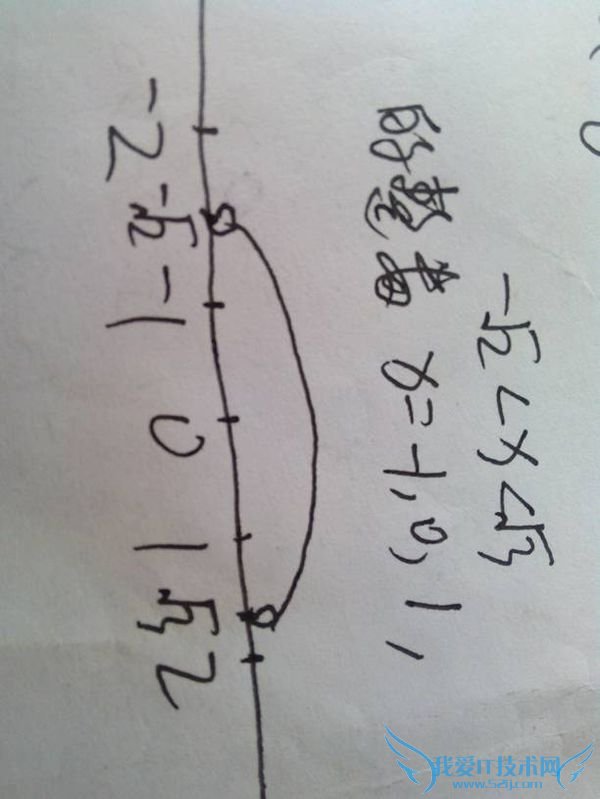 -√2<x<√3
的整数 x=-1,0,1,
-2 -√2 -1 0 1 √3 2
我爱IT技术网
www.52ij.com